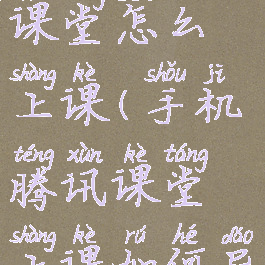 课堂怎么
shàng kè shǒu jī
上课(手机
téng xùn kè táng
腾讯课堂
shàng kè rú hé dǎo
上课如何导